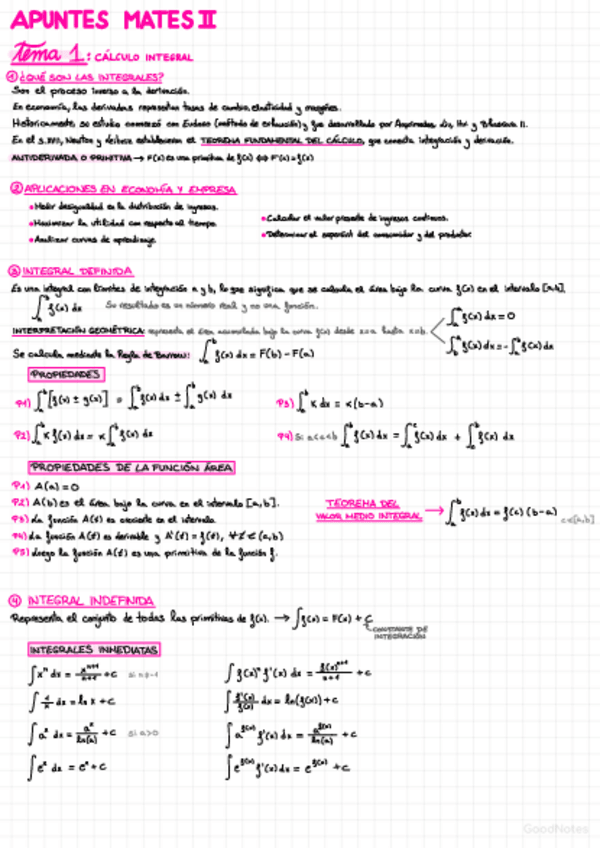 APUNTES MATES II
tema 1: CÁLCULO INTEGRAL
① ¿QUÉ SON LAS INTEGRALES?
Son el proceso inverso a la derivación.
En economía, las derivadas representan tasas de cambio, elasticidad y márgenes.
Históricamente se estudio comenzó con Eudoxo (método de exhaución) y fue desarrollado por Arquímedes, Liu Hui y Bhaskara II.
En el s. XVII, Newton y Leibniz establecieron el TEOREMA FUNDAMENTAL DEL CÁLCULO, que conecta integración y derivación.
ANTIDERIVADA O PRIMITIVA → F(x) es una primitiva de f(x) ⟺ F'(x) = f(x)
② APLICACIONES EN ECONOMÍA Y EMPRESA
• Medir desigualdad en la distribución de ingresos.
• Maximizar la utilidad con respecto al tiempo.
• Analizar curvas de aprendizaje.
• Calcular el valor presente de ingresos continuos.
• Determinar el superávit del consumidor y del productor.
③ INTEGRAL DEFINIDA
Es una integral con límites de integración a y b, lo que significa que se calcula el área bajo la curva f(x) en el intervalo [a,b].
∫ₐᵇ f(x) dx Su resultado es un número real y no una función.
INTERPRETACIÓN GEOMÉTRICA: representa el área acumulada bajo la curva f(x) desde x=a hasta x=b.
∫ₐᵃ f(x) dx = 0
∫ₐᵇ f(x) dx = -∫ f(x) dx
Se calcula mediante la Regla de Barrow: ∫ₐᵇ f(x) dx = F(b) - F(a)
PROPIEDADES
P1) ∫ₐᵇ [f(x) ± g(x)] = ∫ₐᵇ f(x) dx ± ∫ₐᵇ g(x) dx
P2) ∫ₐᵇ K f(x) dx = K ∫ₐᵇ f(x) dx
P3) ∫ₐᵇ K dx = K (b-a)
P4) Si a<c<b ∫ₐᵇ f(x) dx = ∫ₐᶜ f(x) dx + ∫ f(x) dx
PROPIEDADES DE LA FUNCIÓN ÁREA
P1) A(a) = 0
P2) A(b) es el área bajo la curva en el intervalo [a,b].
P3) La función A(t) es creciente en el intervalo.
P4) La función A(t) es derivable y A'(t) = f(t), ∀ t ∈ (a,b)
P5) Luego la función A(t) es una primitiva de la función f.
TEOREMA DEL
VALOR MEDIO INTEGRAL → ∫ₐᵇ f(x) dx = f(c) (b-a)
c∈[a,b]
④ INTEGRAL INDEFINIDA
Representa el conjunto de todas las primitivas de f(x). → ∫ f(x) = F(x) + C
CONSTANTE DE
INTEGRACIÓN
INTEGRALES INMEDIATAS
∫ xⁿ dx = xⁿ⁺¹/n+1 + C
∫ 1/x dx = ln x + C
∫ aˣ dx = aˣ/ln(a) + C si a>0
∫ eˣ dx = eˣ + C
∫ f(x)ⁿ f'(x) dx = f(x)ⁿ⁺¹/n+1 + C
∫ f'(x)/f(x) dx = ln(f(x)) + C
∫ a^f(x) f'(x) dx = a^f(x)/ln(a) + C
∫ e^f(x) f'(x) dx = e^f(x) + C
GoodNotes